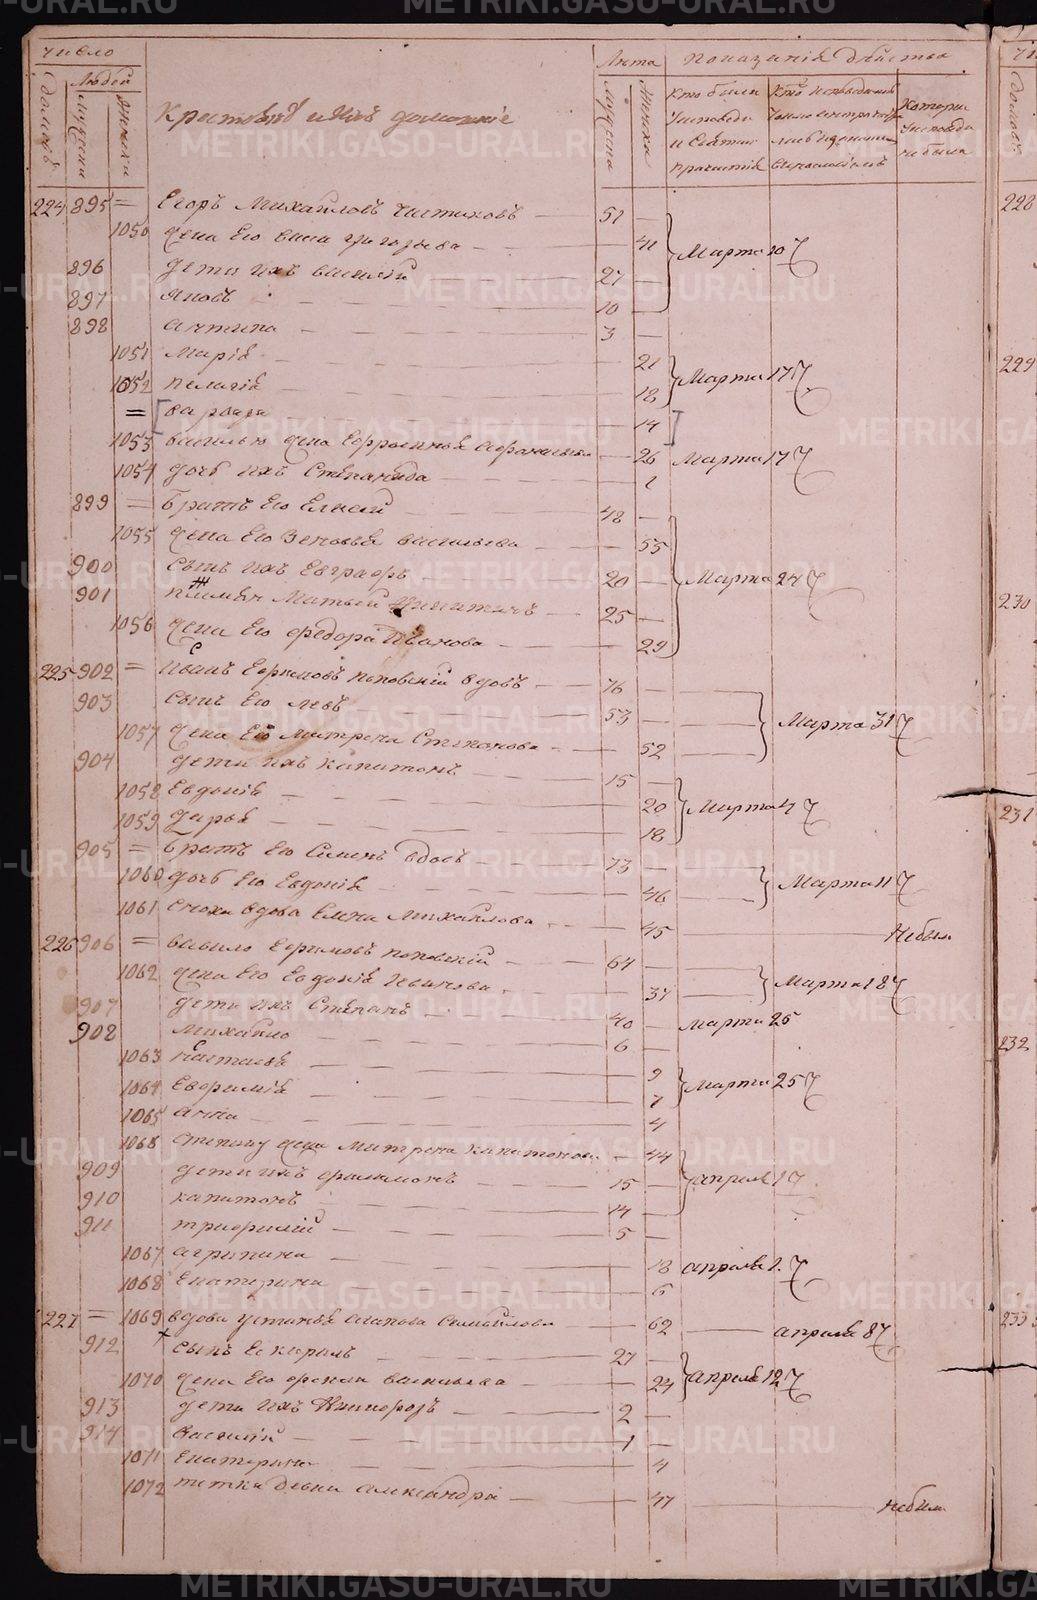 METRIKI.GASO-URAL.RU
число Лѣта Показанія дѣйства
домовъ Людей мужеска женска
Крестьяне и ихъ домашніе
мужеска женска Кто были исповеди и святаго причастія Кто исповедались
224 895 = Егоръ Михайловъ Чистиковъ 51
1050 жена Его Анна Григорьева 41 Марта 10 Ч
896 дети ихъ василій 27
897 Яковъ 10
898 антипа 3
1051 Марія 21
1052 пелагія 18 Марта 17 Ч
= [варвара 14]
1053 василья жена Ефросинья Афанасьева 26 Марта 17 Ч
1054 дочь ихъ Степанида 1
899 = Братъ Его Елисей 48
1055 жена Его Зеновья васильева 55
900 сынъ ихъ Евграфъ 20 Марта 24 Ч
901 Матвей Никитичъ 25
1056 жена Его федора Иванова 29
225 902 = Ефимовъ поповскій вдовъ 76
903 сынъ Его левъ 53 Марта 31 Ч
1057 жена Его Матрена Степанова 52
904 дети ихъ капитонъ 15
1058 Евдокія 20 Марта 4 Ч
1059 дарья 18
905 = братъ Его Семенъ вдовъ 73
1060 дочь Его Евдокія 46 Марта 11 Ч
1061 сноха вдова Елена Михайлова 45 Небыла
226 906 = вавило Ефимовъ поповскій 64
1062 жена Его Евдокія Иванова 37 Марта 18 Ч
907 дети ихъ Степанъ 40 Марта 25
908 Михайло 6
1063 настасья 9
1064 Евфимія 7 Марта 25 Ч
1065 анна 4
1066 степану жена Матрена капитонова 44
909 дети ихъ филимонъ 15 апреля 1 Ч
910 капитонъ 14
911 трифилій 5
1067 агрипина 18 апреля 1. Ч
1068 Екатерина 6
227 = 1069 вдова устинья агапова Самойлова 62 апреля 8 Ч
912 сынъ Ея кирилъ 27
1070 жена Его васильева 24 апреля 12 Ч
913 дети ихъ Никифоръ 2
914 василій 1
1071 Екатерина 4
1072 тетка девка александра 47 небыла
число
домовъ
228
229
230
231
232
233